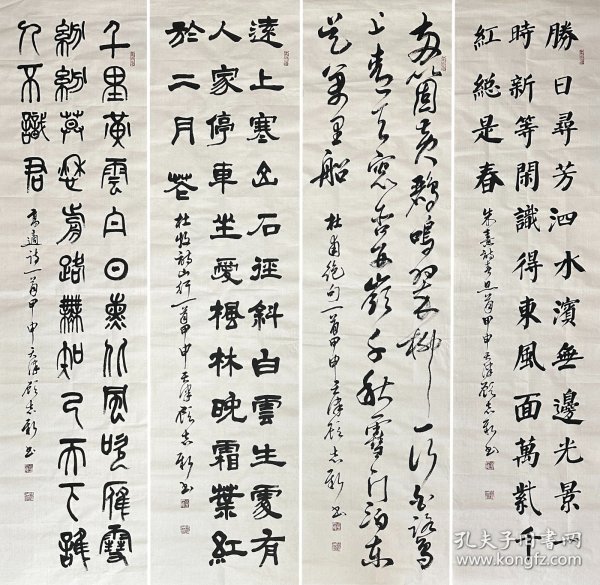 勝日尋芳泗水濱無邊光景
時新等閑識得東風面萬紫千
紅總是春
朱熹詩春日一首甲申天津顧志新書
兩箇黃鸝鳴翠柳一行白鷺
上青天窗含西嶺千秋雪門泊東
吳萬里船
杜甫絕句一首甲申天津顧志新書
遠上寒山石徑斜白雲生處有
人家停車坐愛楓林晚霜葉紅
於二月花
杜牧詩山行一首甲申天津顧志新書
千里黃雲白日曛北風吹雁雪
紛紛莫愁前路無知己天下誰
人不識君
高適詩一首甲申天津顧志新書
孔夫子旧书网
www.kongfz.com